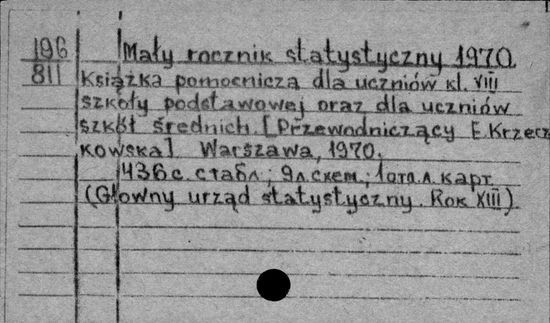 196 Mały rocznik statystyczny 1970.
811 Książka pomocnicza dla uczniów kl. VIII
szkoły podstawowej oraz dla uczniów
szkół średnich [Przewodniczący E. Krzecz
kowska] Warszawa, 1970.
436 с. с табл.; 9 л. схем.; 1 отд. л. карт.
(Głowny urząd statystyczny. Rok XIII).